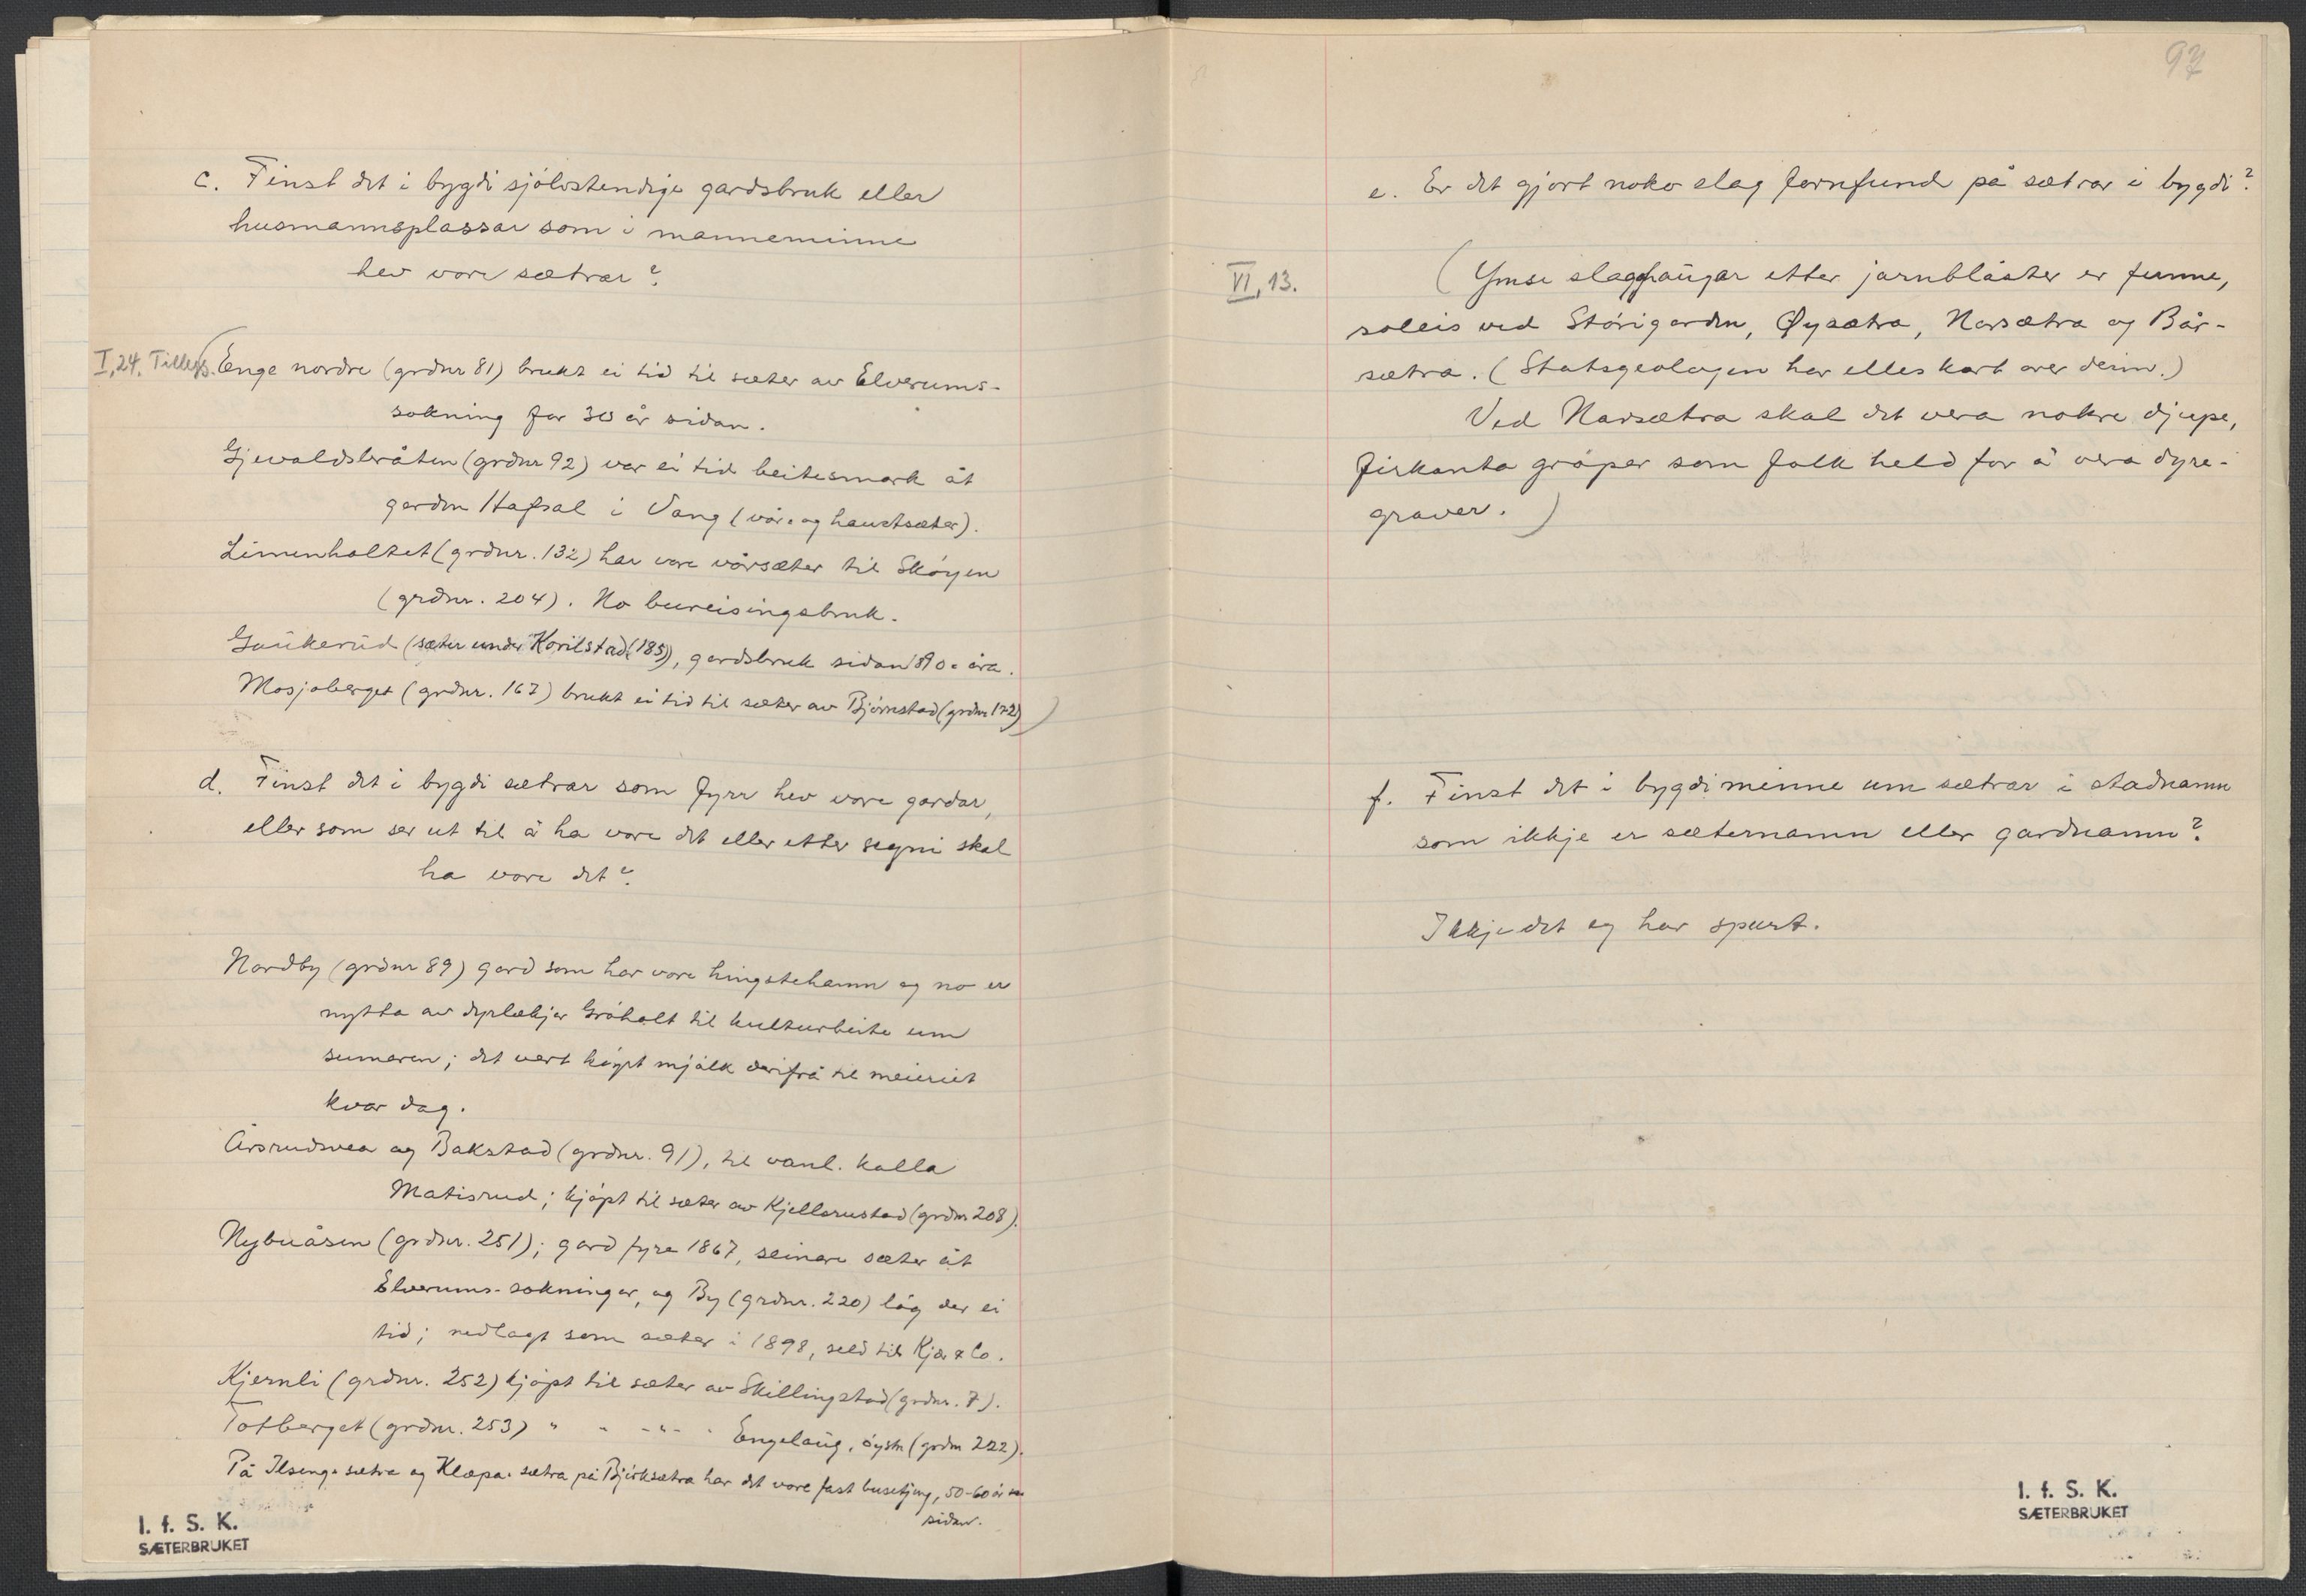 c. Finst det i bygdi sjølvstendige gardsbruk eller
husmannsplassar som i manneminne
hev vore sætrar?
I, 24. Tillegg.
(Enge nordre (grdnr 81) brukt ei tid til sæter av Elverums-
sokning for 30 år sidan.
Gjevaldsbråten (grdnr 92) var ei tid beitesmark åt
garden Hafsal i Vang (vår- og haustsæter).
Linnenholtet (grdnr. 132) har vore vårsæter til Skøyen
(grdnr. 204). No bureisingsbruk.
Gaukerud (sæter under Korilstad (185)), gardsbruk sidan 1890-åra.
Mosjøberget (grdnr. 167) brukt ei tid til sæter av Bjørnstad (grdnr 172))
d. Finst det i bygdi sætrar som fyrr hev vore gardar,
eller som ser ut til å ha vore det eller etter segni skal
ha vore det?
Nordby (grdnr 89) gard som har vore hingstehamn og no er
nytta av dyrlækjar Gröholt til kulturbeite um
sumaren; det vert köyrt mjölk derifrå til meieriet
kvar dag.
Årsrudsvea og Bakstad (grdnr. 91), til vanl. kalla
Matisrud; kjöpt til sæter av Kjellarustad (grdnr 208).
Nybuåsen (grdnr. 251); gard fyre 1867, seinare sæter åt
Elverums-sokningar, og By (grdnr. 220) låg der ei
tid; nedlagt som sæter i 1898, seld til Kjær & Co.
Kjernli (grdnr. 252) kjöpt til sæter av Skillingstad (grdnr. 7).
Tofberget (grdnr. 253) " - -"- - Engelaug, öystre (grdnr 222).
På Ilseng-sætra og Klæpa-sætra på Björksætra har det vore fast busetjing, 50-60 år
sidan.
I. f. S. K.
SÆTERBRUKET
97
e. Er det gjort noko slag fornfund på sætrar i bygdi?
VI, 13.
(Ymse slagghaugar etter jarnblåster er funne,
soleis ved Störigarden, Øysætra, Narsætra og Bår-
sætra. (Statsgeologen har elles kart over deim.)
Ved Narsætra skal det vera nokre djupe,
firkanta gröper som folk held for å vera dyre-
graver.)
f. Finst det i bygdi minne um sætrar i stadnamn
som ikkje er sæternamn eller gardnamn?
Ikkje det eg har spurt.
I. f. S. K.
SÆTERBRUKET